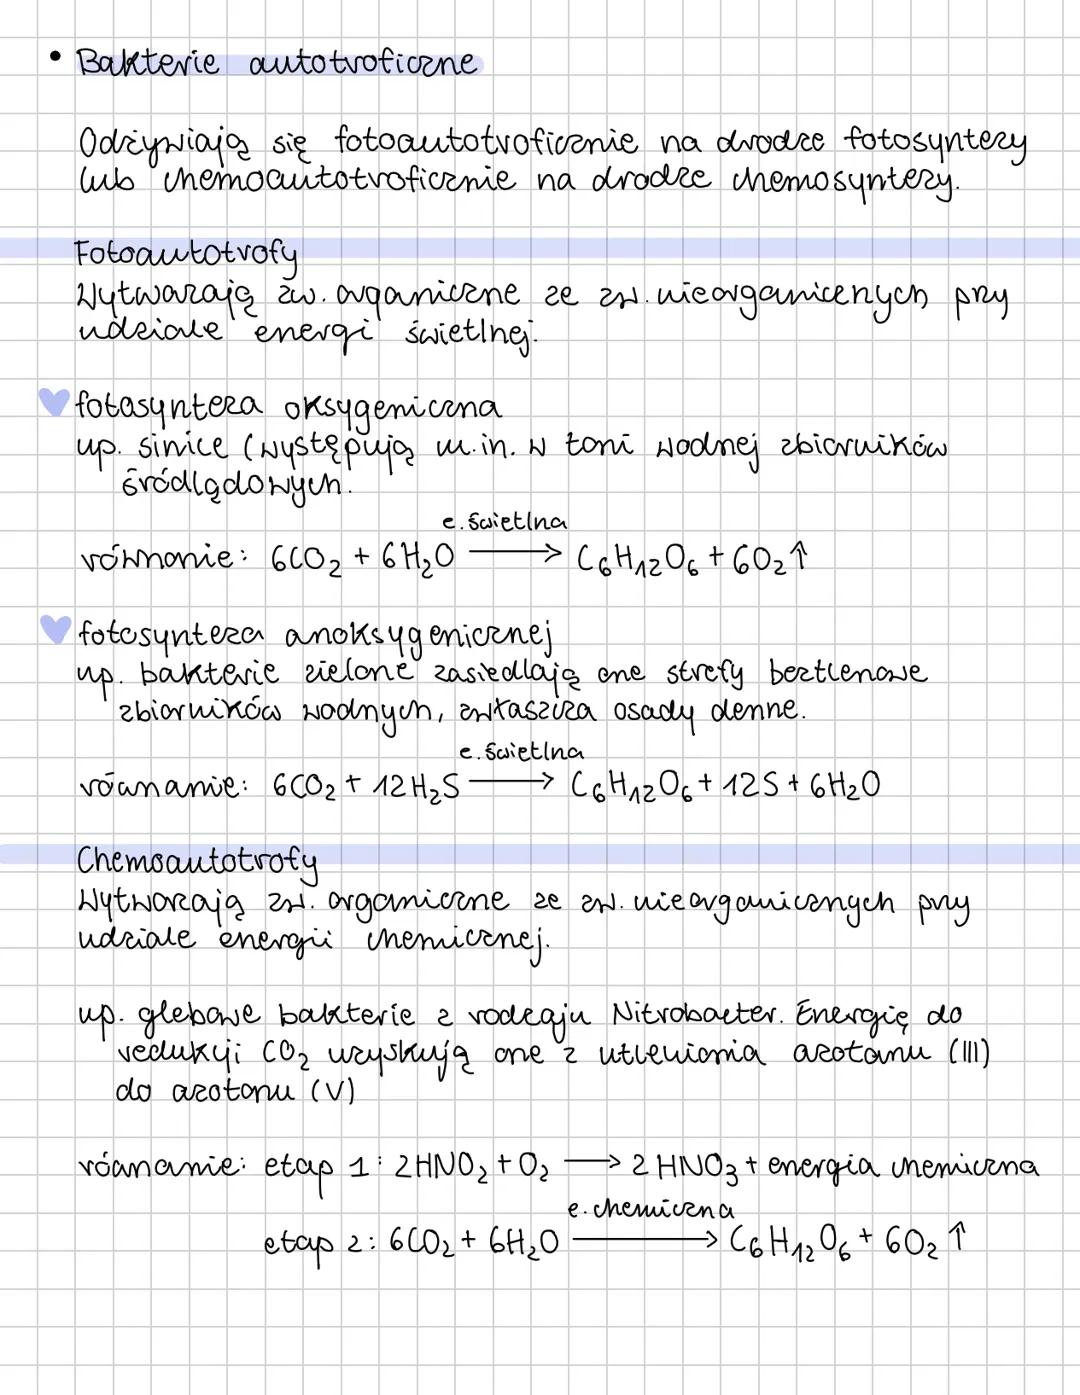 • Bakterie autotroficzne
Odżywiają się fotoautotroficznie na drodze fotosyntezy
lub chemoautotroficznie na drodze chemosyntezy.
Fotoautotrofy
Wytwarzają zw. organiczne ze zw. nieorganicznych przy
udziale energi świetlnej.
fotosynteza oksygeniczna
np. sinice (występują m.in. w toni wodnej zbiorników
śródlądowych.
e. świetlna
równanie: 6CO₂ + 6H₂O ⟶ C₆H₁₂O₆ + 6O₂↑
fotosynteza anoksygenicznej
np. bakterie zielone zasiedlają one strefy beztlenowe
zbiorników wodnych, zwłaszcza osady denne.
e. świetlna
równanie: 6CO₂ + 12H₂S ⟶ C₆H₁₂O₆ + 12S + 6H₂O
Chemoautotrofy
Wytwarzają zw. organiczne ze zw. nieorganicznych przy
udziale energii chemicznej.
np. glebowe bakterie z rodzaju Nitrobacter. Energię do
redukcji CO₂ uzyskują one z utleniania azotanu (III)
do azotanu (V)
równanie: etap 1: 2HNO₂ + O₂ ⟶ 2HNO₃ + energia chemiczna
e. chemiczna
etap 2: 6CO₂ + 6H₂O ⟶ C₆H₁₂O₆ + 6O₂↑